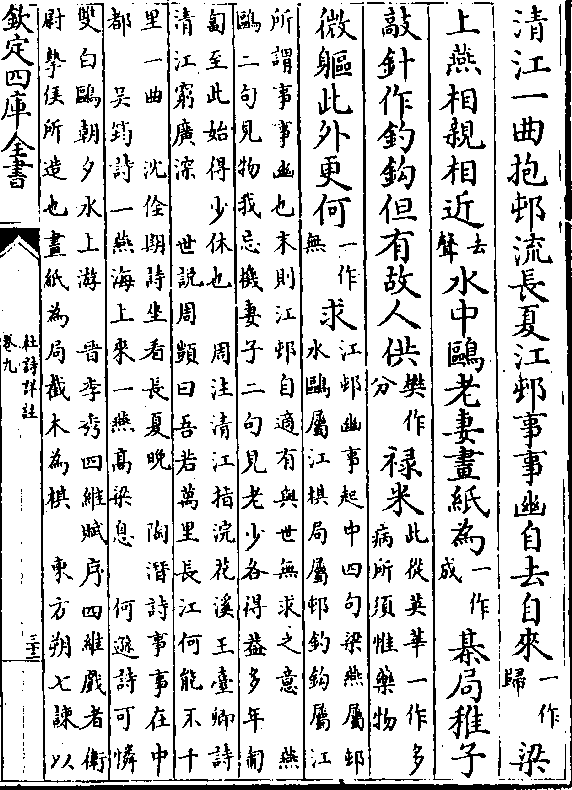 清江一曲抱邨流長夏江邨事事幽自去自來一作歸梁
上燕相親相近去聲水中鷗老妻畫紙為一作成棊局稚子
敲針作釣鈎但有故人供樊作分祿米此從英華一作多病所須惟藥物
微軀此外更何一作無求江邨幽事起中四句梁燕屬邨水鷗屬江棋局屬邨釣鈎屬江
所謂事事幽也末則江邨自適有與世無求之意 燕
鷗二句見物我忘機妻子二句見老少各得蓋多年匍
匐至此始得少休也 周注清江指浣花溪王臺卿詩
清江窮廣深 世說周顗曰吾若萬里長江何能不千
里一曲 沈佺期詩坐看長夏晚 陶潛詩事事在中
都 吳筠詩一燕海上來一燕高梁息 何遜詩可憐
雙白鷗朝夕水上游 晉李秀四維賦序四維戲者衛
尉摯侯所造也畫紙為局截木為棋 東方朔七諫以
欽定四庫全書
杜詩詳註
卷九